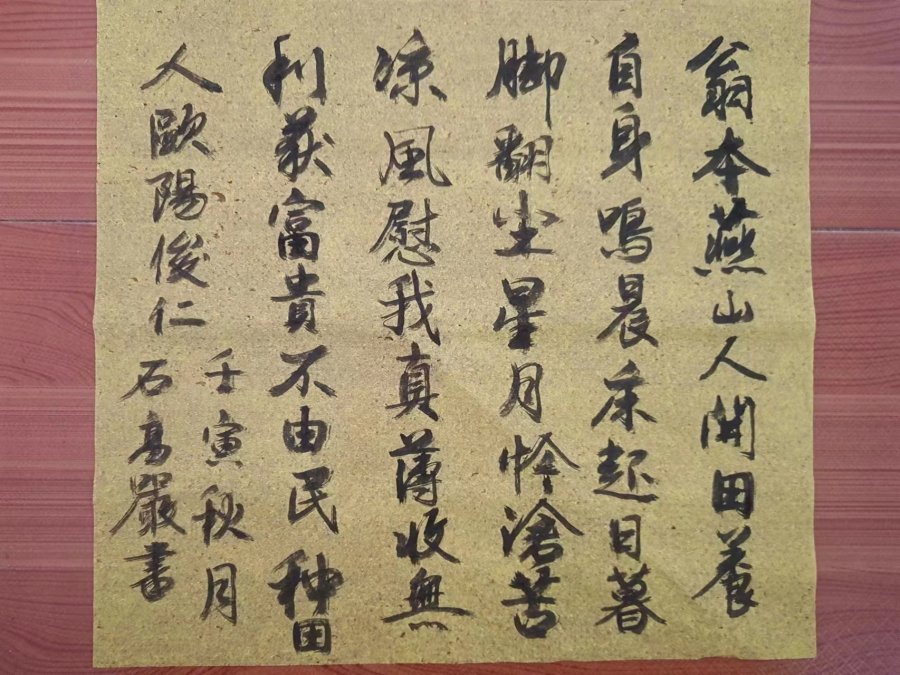 翁本燕山人開田養
自身鳴晨床起日暮
脚翻尘星月怜滄苦
凉風慰我真薄收無
利获富貴不由民种田
人歐陽俊仁
壬寅秋月
石高嚴書